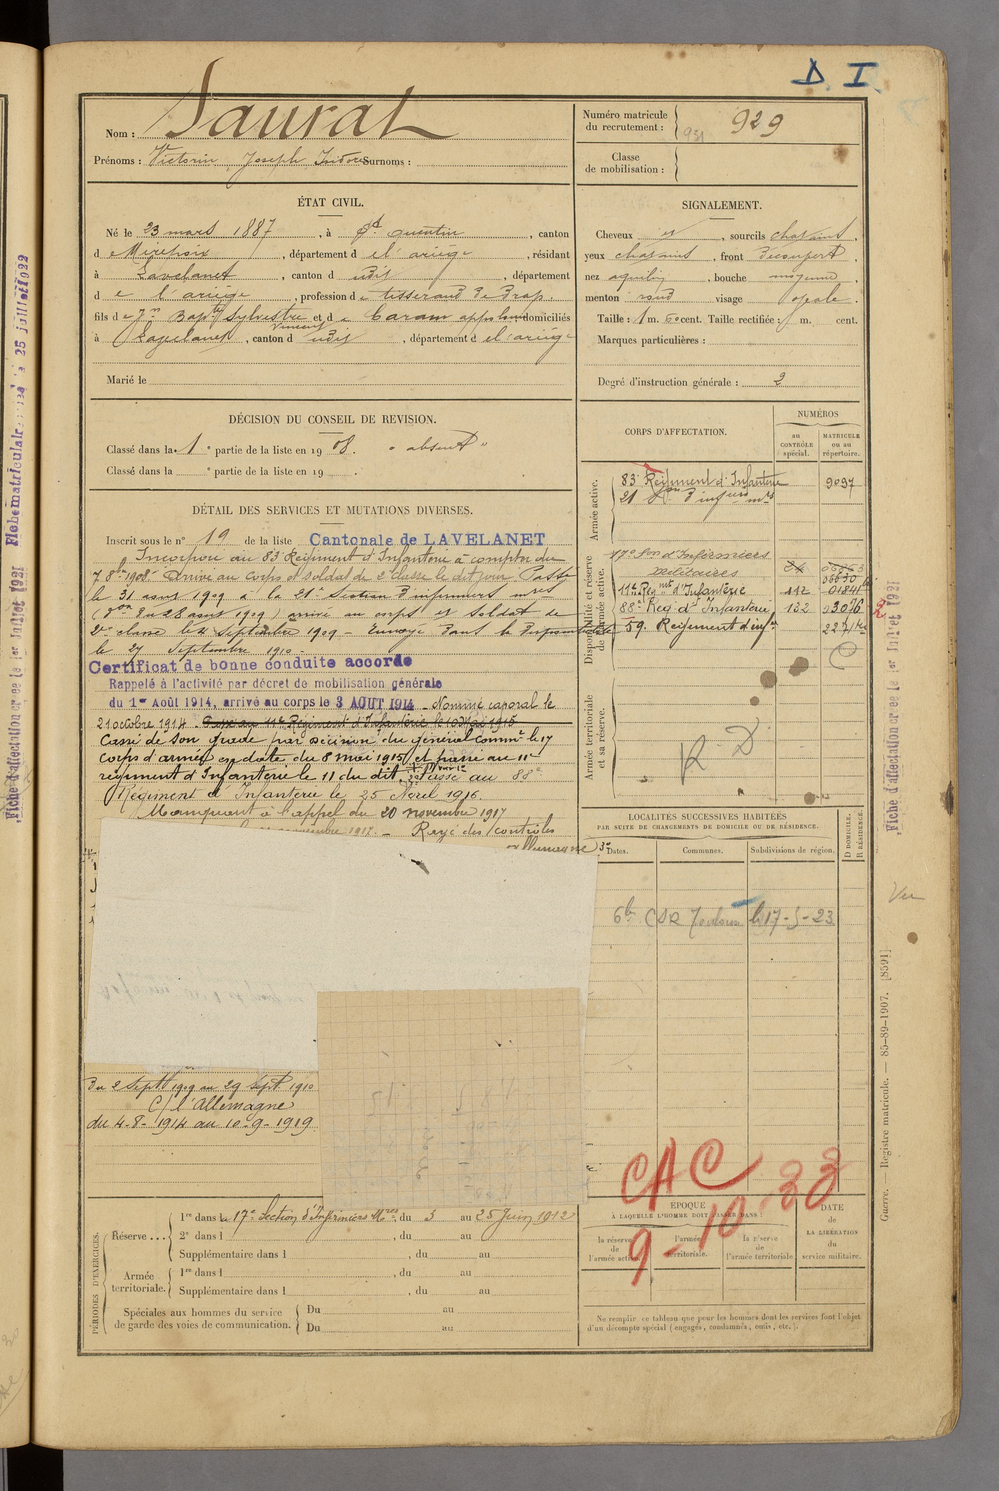 D. I.
Nom : Saurat
Prénoms : Victorin Joseph Isidore Surnoms :
Numéro matricule du recrutement : 929
931
Classe de mobilisation :
ÉTAT CIVIL.
Né le 23 mars 1887, à St Quentin, canton
d Mirepoix, département d e l'ariège, résidant
à Lavelanet, canton d udit, département
d e l'ariège, profession d e tisserand de drap.
fils d e Jn Bapte Sylvestre et d e Caram domiciliés
à Lavelanet, canton d udit, département d e l'ariège
Marié le
SIGNALEMENT.
Cheveux et, sourcils chatains,
yeux chatains, front découvert,
nez aquilin, bouche moyenne,
menton rond visage ovale.
Taille : 1 m. 60 cent. Taille rectifiée : 1 m. cent.
Marques particulières :
Degré d'instruction générale : 2
DÉCISION DU CONSEIL DE REVISION.
Classé dans la 1e partie de la liste en 1908. "absent"
Classé dans la e partie de la liste en 19 .
DÉTAIL DES SERVICES ET MUTATIONS DIVERSES.
Inscrit sous le n° 19 de la liste Cantonale de LAVELANET
Incorporé au 83e Régiment d'Infanterie à compter du
7 8bre 1908. Arrivé au corps et soldat de 2e classe le dit jour. Passé
le 31 aout 1909 à la 21e Section d'infirmiers mres
du 28 aout 1909 arrivé au corps et soldat de
2e classe le 2 Septembre 1909 - Envoyé dans la disponibilité
le 27 Septembre 1910.
Certificat de bonne conduite accordé
Rappelé à l'activité par décret de mobilisation générale
du 1er Août 1914, arrivé au corps le 3 AOUT 1914 - Nommé caporal le
21 octobre 1914. Passé au 11e Régiment d'Infanterie le 10 Mai 1915
Cassé de son grade par décision du général Commt le 17
corps d'armée en date du 8 mai 1915 et passé au 11e
régiment d'Infanterie le 11 du dit. Passé au 88e
Régiment d'Infanterie le 25 Avril 1916.
Manquant à l'appel du 20 novembre 1917
novembre 1917. - Rayé des contrôles
allemagne
Du 2 Septbre 1909 au 29 Sept. 1910
C/ l'Allemagne
du 4-8-1914 au 10-9-1919
CORPS D'AFFECTATION.
NUMÉROS
au CONTRÔLE spécial.
MATRICULE ou au répertoire.
Armée active.
83e Régiment d'Infanterie 9097
21e Son d'infiers mres
Disponibilité et réserve de l'armée active.
17e Son d'Infirmiers
militaires
11e Regmt d'Infanterie 112
88e Reg. d'Infanterie 132 03076
59. Regiment d'infie
Armée territoriale et sa réserve.
R D
LOCALITÉS SUCCESSIVES HABITÉES
PAR SUITE DE CHANGEMENTS DE DOMICILE OU DE RÉSIDENCE.
Dates.
Communes.
Subdivisions de région.
D DOMICILE.
R RÉSIDENCE.
CSR Toulouse le 17-5-23
CAC
9-10-33
ÉPOQUE
À LAQUELLE L'HOMME DOIT PASSER DANS :
la réserve de l'armée active.
l'armée territoriale.
la réserve de l'armée territoriale.
DATE DE LA LIBÉRATION du service militaire.
Ne remplir ce tableau que pour les hommes dont les services font l'objet
d'un décompte spécial (engagés, condamnés, omis, etc.).
PÉRIODES D'EXERCICES.
Réserve ...
1re dans la 17e Section d'Infirmiers Mres, du 3 au 25 Juin 1912
2e dans l , du au
Supplémentaire dans l , du au
Armée territoriale.
1re dans l , du au
Supplémentaire dans l , du au
Spéciales aux hommes du service de garde des voies de communication.
Du au
Du au
Vu
Fiche d'affectation créée le 1er Juillet 1921
Guerre. — Registre matricule. — 85-89-1907. [8591]
Fiche d'affectation créée le 1er Juillet 1921
Fiche matriculaire créée le 25 juillet 1922